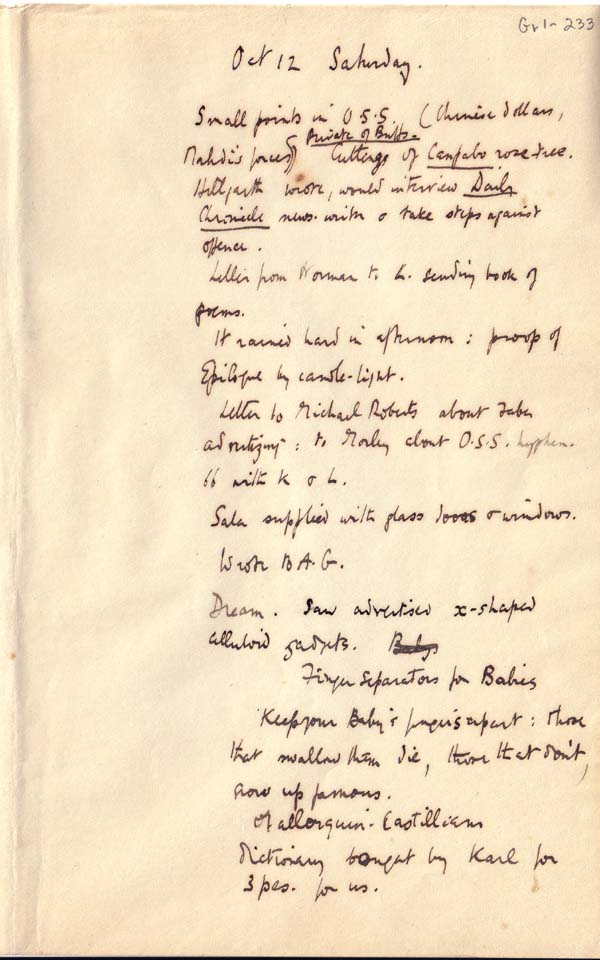 Gr1-233
Oct 12 Saturday.
Small points in O.S.S. (Chinese dollars,
Private of Buffs.
Mahdi's forces) Cuttings of Canfabo rose-tree.
Hillgarth wrote, would interview Daily
Chronicle news-writer & take steps against
offence.
Letter from Norman to L. sending book of
poems.
It rained hard in afternoon: proof of
Epilogue by candle-light.
Letter to Michael Roberts about Faber
advertizing: to Morley about O.S.S. hyphen.
66 with K & L.
Sala supplied with glass doors & windows.
Wrote B.A.G.
Dream. Saw advertised x-shaped
celluloid gadgets. Babys
Finger Separators for Babies
Keep your Baby's fingers apart: those
that swallow them die, those that don't,
grow up famous.
Mallorquin-Castillian
dictionary bought by Karl for
3 pes. for us.